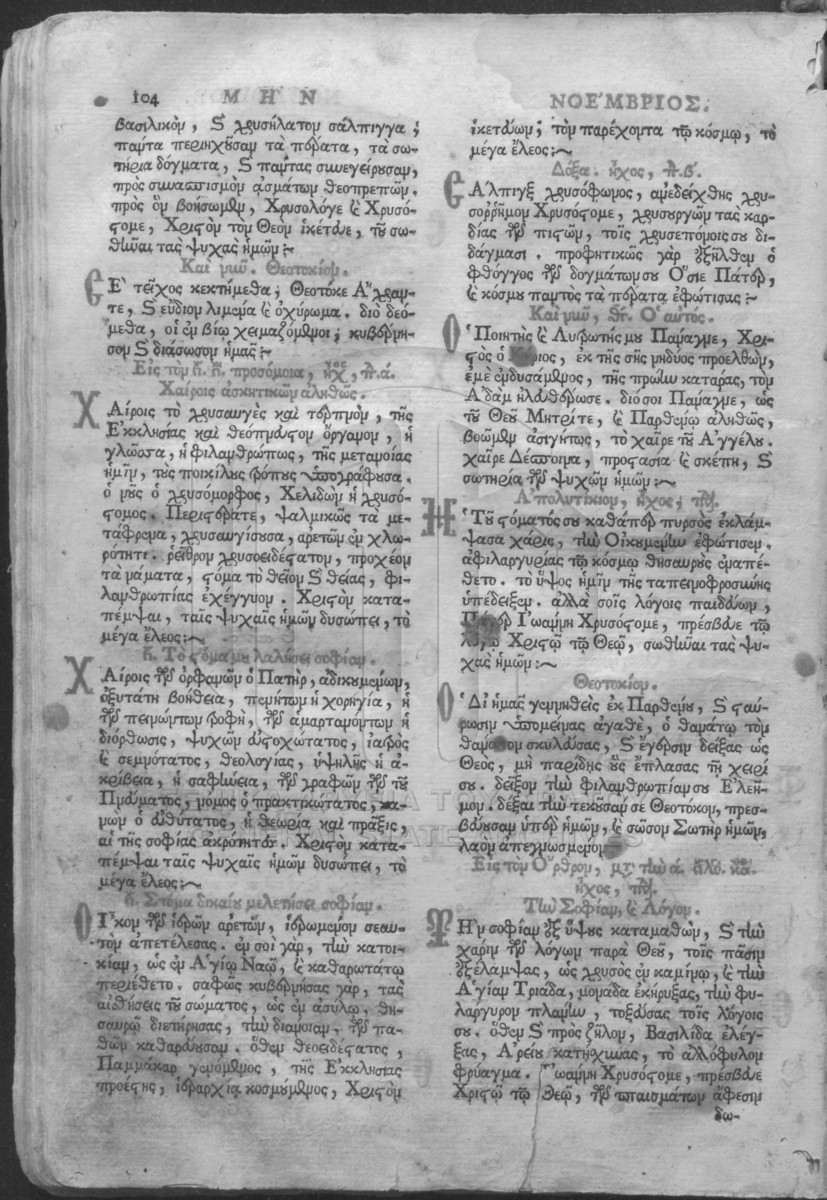 104 ΜΗΝ
βασιλικὸν, ϗ χρυσήλατον σάλπιγγα ;
πάντα περιηχοῦσαν τὰ πέρατα, τὰ σω-
τήρια δόγματα, ϗ πάντας συνεγείρουσαν,
πρὸς συνασπισμὸν ᾀσμάτων θεοπρεπῶν.
πρὸς ὃν βοήσωμεν, Χρυσολόγε ϗ Χρυσό-
στομε, Χριστὸν τὸν Θεὸν ἱκέτευε, τοῦ σω-
θῆναι τὰς ψυχὰς ἡμῶν :~
Καὶ νῦν. Θεοτοκίον.
ΣΕ` τεῖχος κεκτήμεθα ; Θεοτόκε Ἄχραν-
τε, ϗ εὔδιον λιμένα ϗ ὀχύρωμα. διὸ δεό-
μεθα, οἱ ἐν βίῳ χειμαζόμενοι ; κυβέρνη-
σον ϗ διάσωσον ἡμᾶς :~
Εἰς τὸν ς̓. ς̓. προσόμοια, ἦχος, πλ. ά.
Χαίροις ἀσκητικῶν ἀληθῶς.
ΧΑίροις τὸ χρυσαυγὲς καὶ τερπνὸν, τῆς
Ἐκκλησίας καὶ θεόπνευστον ὄργανον, ἡ
γλῶσσα, ἡ φιλανθρώπως, τῆς μετανοίας
ἡμῖν, τοὺς ποικίλους τρόπους ὑπογράφουσα.
ὁ νοῦς ὁ χρυσόμορφος, Χελιδὼν ἡ χρυσό-
στομος. Περιστερά τε, ψαλμικῶς τὰ με-
τάφρενα, χρυσαυγίζουσα, ἀρετῶν ἐν χλω-
ρότητι. ῥεῖθρον χρυσοειδέστατον, προχέον
τὰ νάματα, στόμα τὸ θεῖον ϗ θείας, φι-
λανθρωπίας ἐχέγγυον. Χριστὸν κατα-
πέμψαι, ταῖς ψυχαῖς ἡμῶν δυσώπει, τὸ
μέγα ἔλεος :~
ς̓. Τὸ στόμα μου λαλήσει σοφίαν.
ΧΑίροις τῶν ὀρφανῶν ὁ Πατὴρ, ἀδικουμένων,
ὀξυτάτη βοήθεια, πενήτων ἡ χορηγία, ἡ
τῶν πεινώντων τροφὴ, τῶν ἁμαρτανόντων ἡ
διόρθωσις, ψυχῶν εὐστοχώτατος, ἰατρὸς
ϗ σεμνότατος, θεολογίας, ὑψηλῆς ἡ ἀ-
κρίβεια, ἡ σαφήνεια, τῶν γραφῶν τῶν τοῦ
Πνεύματος, νόμος ὁ πρακτικώτατος, κα-
νὼν ὁ εὐθύτατος, ἡ θεωρία καὶ πρᾶξις,
αἱ τῆς σοφίας ἀκρότητες. Χριστὸν κατα-
πέμψαι ταῖς ψυχαῖς ἡμῶν δυσώπει, τὸ
μέγα ἔλεος :~
ς̓. Στόμα δικαίου μελετήσει σοφίαν.
ΟΙ῏κον τῶν ἱερῶν ἀρετῶν, ἱερωμένον σεαυ-
τὸν ἀπετέλεσας. ἐν σοὶ γὰρ, τὴν κατοι-
κίαν, ὡς ἐν Ἁγίῳ Ναῷ, ϗ καθαρωτάτῳ
περιέθετο. σαφῶς κυβερνήσας γὰρ, τὰς
αἰσθήσεις τοῦ σώματος, ὡς ἐν ἀσύλῳ, θη-
σαυρῷ διετήρησας, τὴν διάνοιαν, τῶν πα-
θῶν καθαρεύουσαν. ὅθεν θεοειδέστατος,
Παμμάκαρ γενόμενος, τῆς Ἐκκλησίας
προέστης, ἱεραρχία κοσμούμενος, Χριστὸν
ΝΟΕ´ΜΒΡΙΟΣ.
ἱκετεύων ; τὸν παρέχοντα τῷ κόσμῳ, τὸ
μέγα ἔλεος :~
Δόξα. ἦχος, πλ. β΄.
ΣΑ´λπιγξ χρυσόφωνος, ἀνεδείχθης χρυ-
σορρῆμον Χρυσόστομε, χρυσουργῶν τὰς καρ-
δίας τῶν πιστῶν, τοῖς χρυσεπόνοις σου δι-
δάγμασι. προφητικῶς γὰρ ἐξῆλθεν ὁ
φθόγγος τῶν δογμάτων σου Ὅσιε Πάτερ,
ϗ κόσμου παντὸς τὰ πέρατα ἐφώτισας :~
Καὶ νῦν, Θεοτ. Ὁ αὐτός.
Ὁ Ποιητὴς ϗ Λυτρωτής μου Πάναγνε, Χρι-
στὸς ὁ Κύριος, ἐκ τῆς σῆς νηδύος προελθὼν,
ἐμὲ ἐνδυσάμενος, τῆς πρώην κατάρας, τὸν
Ἀδὰμ ἠλευθέρωσε. διό σοι Πάναγνε, ὡς
τοῦ Θεοῦ Μητρί τε, ϗ Παρθένῳ ἀληθῶς,
βοῶμεν ἀσιγήτως, τὸ χαῖρε τοῦ Ἀγγέλου.
χαῖρε Δέσποινα, προστασία ϗ σκέπη, ϗ
σωτηρία τῶν ψυχῶν ἡμῶν :~
Ἀπολυτίκιον, ἦχος ; πλ. δ΄.
Ἡ Τοῦ στόματός σου καθάπερ πυρσὸς ἐκλάμ-
ψασα χάρις, τὴν Οἰκουμένην ἐφώτισεν.
ἀφιλαργυρίας τῷ κόσμῳ θησαυροὺς ἐναπέ-
θετο. τὸ ὕψος ἡμῖν τῆς ταπεινοφροσύνης
ὑπέδειξεν. ἀλλὰ σοῖς λόγοις παιδεύων,
Πάτερ Ἰωάννη Χρυσόστομε, πρέσβευε τῷ
λόγῳ Χριστῷ τῷ Θεῷ, σωθῆναι τὰς ψυ-
χὰς ἡμῶν :~
Θεοτοκίον.
Ὁ Δι᾿ ἡμᾶς γεννηθεὶς ἐκ Παρθένου, ϗ σταύ-
ρωσιν ὑπομείνας ἀγαθὲ, ὁ θανάτῳ τὸν
θάνατον σκυλεύσας, ϗ ἔγερσιν δείξας ὡς
Θεὸς, μὴ παρίδῃς οὓς ἔπλασας τῇ χειρί
σου. δεῖξον τὴν φιλανθρωπίαν σου Ἐλεῆ-
μον. δέξαι τὴν τεκοῦσάν σε Θεοτόκον, πρεσ-
βεύουσαν ὑπὲρ ἡμῶν, ϗ σῶσον Σωτὴρ ἡμῶν,
λαὸν ἀπεγνωσμένον.
Εἰς τὸν Ὄρθρον, μετ. τὴν ά. στιχο. κάθ.
ἦχος, πλ. δ΄.
Τὴν Σοφίαν, ϗ Λόγον.
ΤΗ`ν σοφίαν ἐξ ὕψους καταμαθὼν, ϗ τὴν
χάριν τῶν λόγων παρὰ Θεοῦ, τοῖς πᾶσιν
ἐξέλαμψας, ὡς χρυσὸς ἐν καμίνῳ, ϗ τὴν
Ἁγίαν Τριάδα, μονάδα ἐκήρυξας, τὴν φι-
λάργυρον πλάνην, τοξεύσας τοῖς λόγοις
σου. ὅθεν ϗ πρὸς ζῆλον, Βασιλίδα ἐλέγ-
ξας, Ἀρείου κατῄσχυνας, τὸ ἀλλόφυλον
φρύαγμα. Ἰωάννη Χρυσόστομε, πρέσβευε
Χριστῷ τῷ Θεῷ, τῶν πταισμάτων ἄφεσιν
δω-